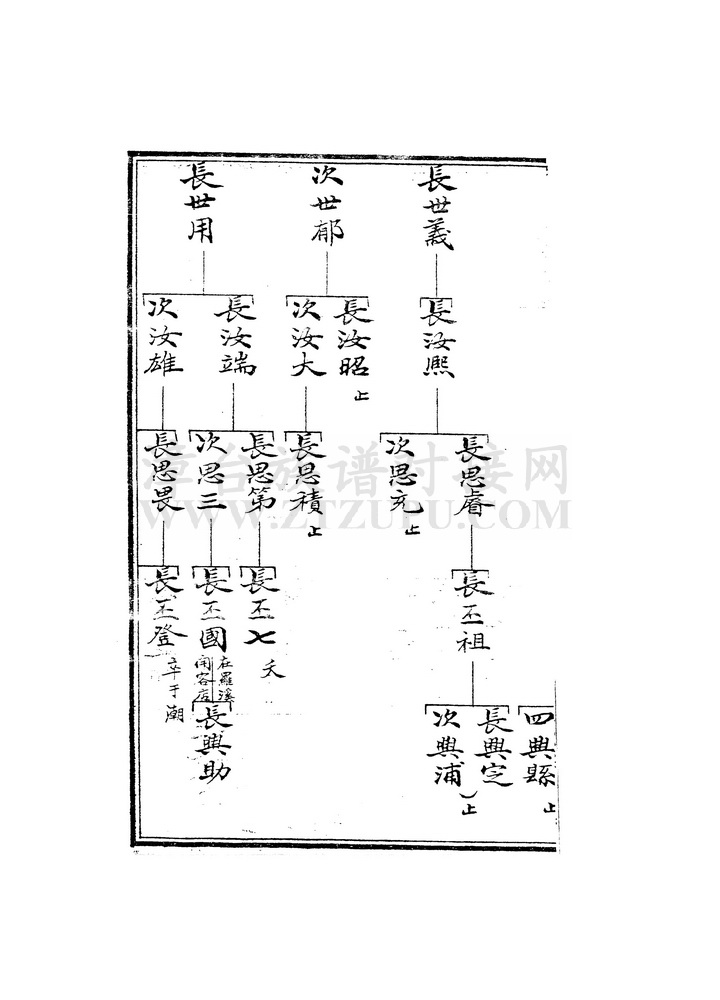 長世義
次世郁
長世用
長汝熙
長汝昭
止
次汝大
長汝端
次汝雄
長思睿
次思充
止
長思積
止
長思第
次思三
長思畏
長丕祖
長丕七
夭
長丕國
在羅溪
開客店
長丕登
卒于潮
四興縣
止
長興定
次興浦
止
長興助
漳台族谱对接网
WWW.ZTZUPU.COM